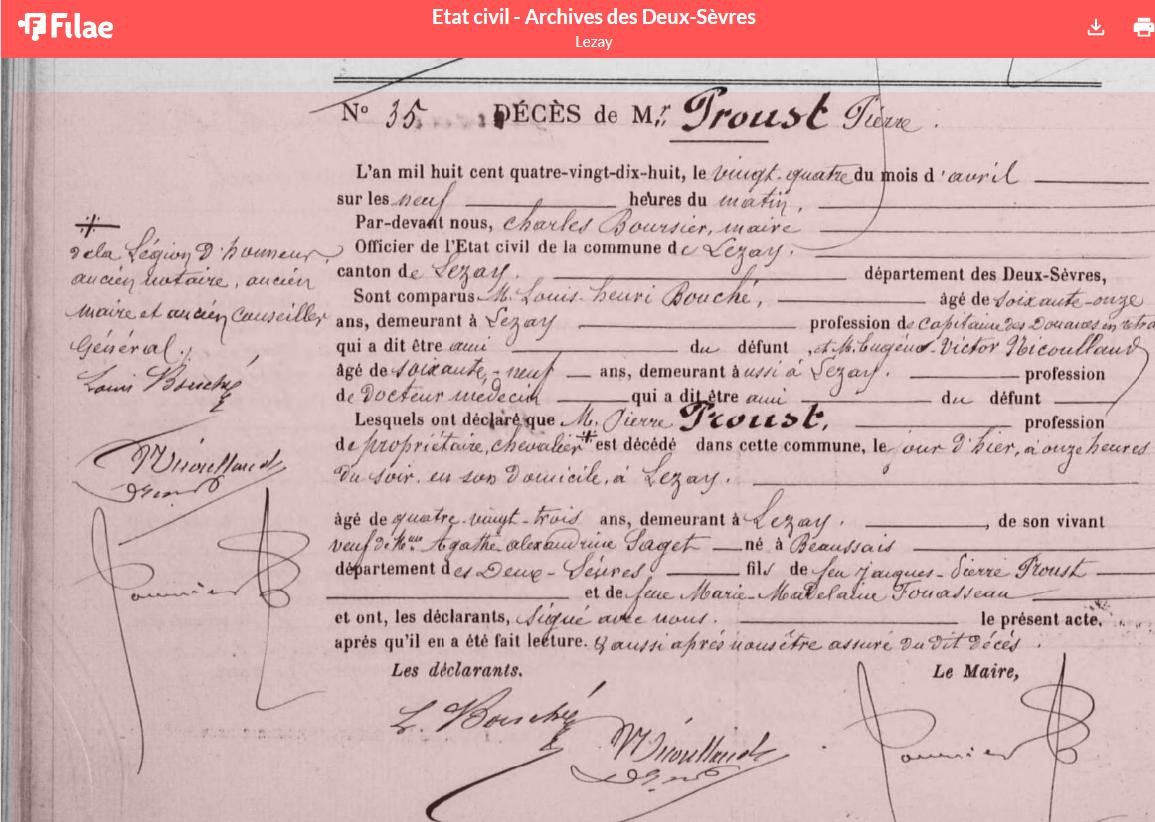 Filae
Etat civil - Archives des Deux-Sèvres
Lezay
N° 35. DÉCÈS de Mr Proust Pierre.
L'an mil huit cent quatre-vingt-dix-huit, le vingt-quatre du mois d'avril
sur les neuf heures du matin,
Par-devant nous, charles Boursier, maire
Officier de l'Etat civil de la commune de Lezay.
canton de Lezay. département des Deux-Sèvres,
Sont comparus M. Louis-henri Bouché, âgé de soixante-onze
ans, demeurant à Lezay profession de Capitaine des Douanes en retra
qui a dit être ami du défunt, et M. Eugène-Victor Nicoullaud
âgé de soixante-neuf ans, demeurant aussi à Lezay. profession
de Docteur médecin qui a dit être ami du défunt
Lesquels ont déclaré que M. Pierre Proust, profession
de propriétaire, chevalier est décédé dans cette commune, le jour d'hier, à onze heures
du soir, en son domicile, à Lezay.
âgé de quatre-vingt-trois ans, demeurant à Lezay. , de son vivant
veuf de Agathe alexandrine Saget né à Beaussais
département des Deux-Sèvres fils de feu Jacques-Pierre Proust
et de feue Marie-Madelaine Fouasseau
et ont, les déclarants, signé avec nous. le présent acte,
après qu'il en a été fait lecture. & aussi après nous être assuré du dit décès.
Les déclarants. Le Maire,
L. Bouché
Nicoullaud
de la Légion d'honneur,
ancien notaire, ancien
maire et ancien conseiller
Général.
Louis Bouché
Nicoullaud